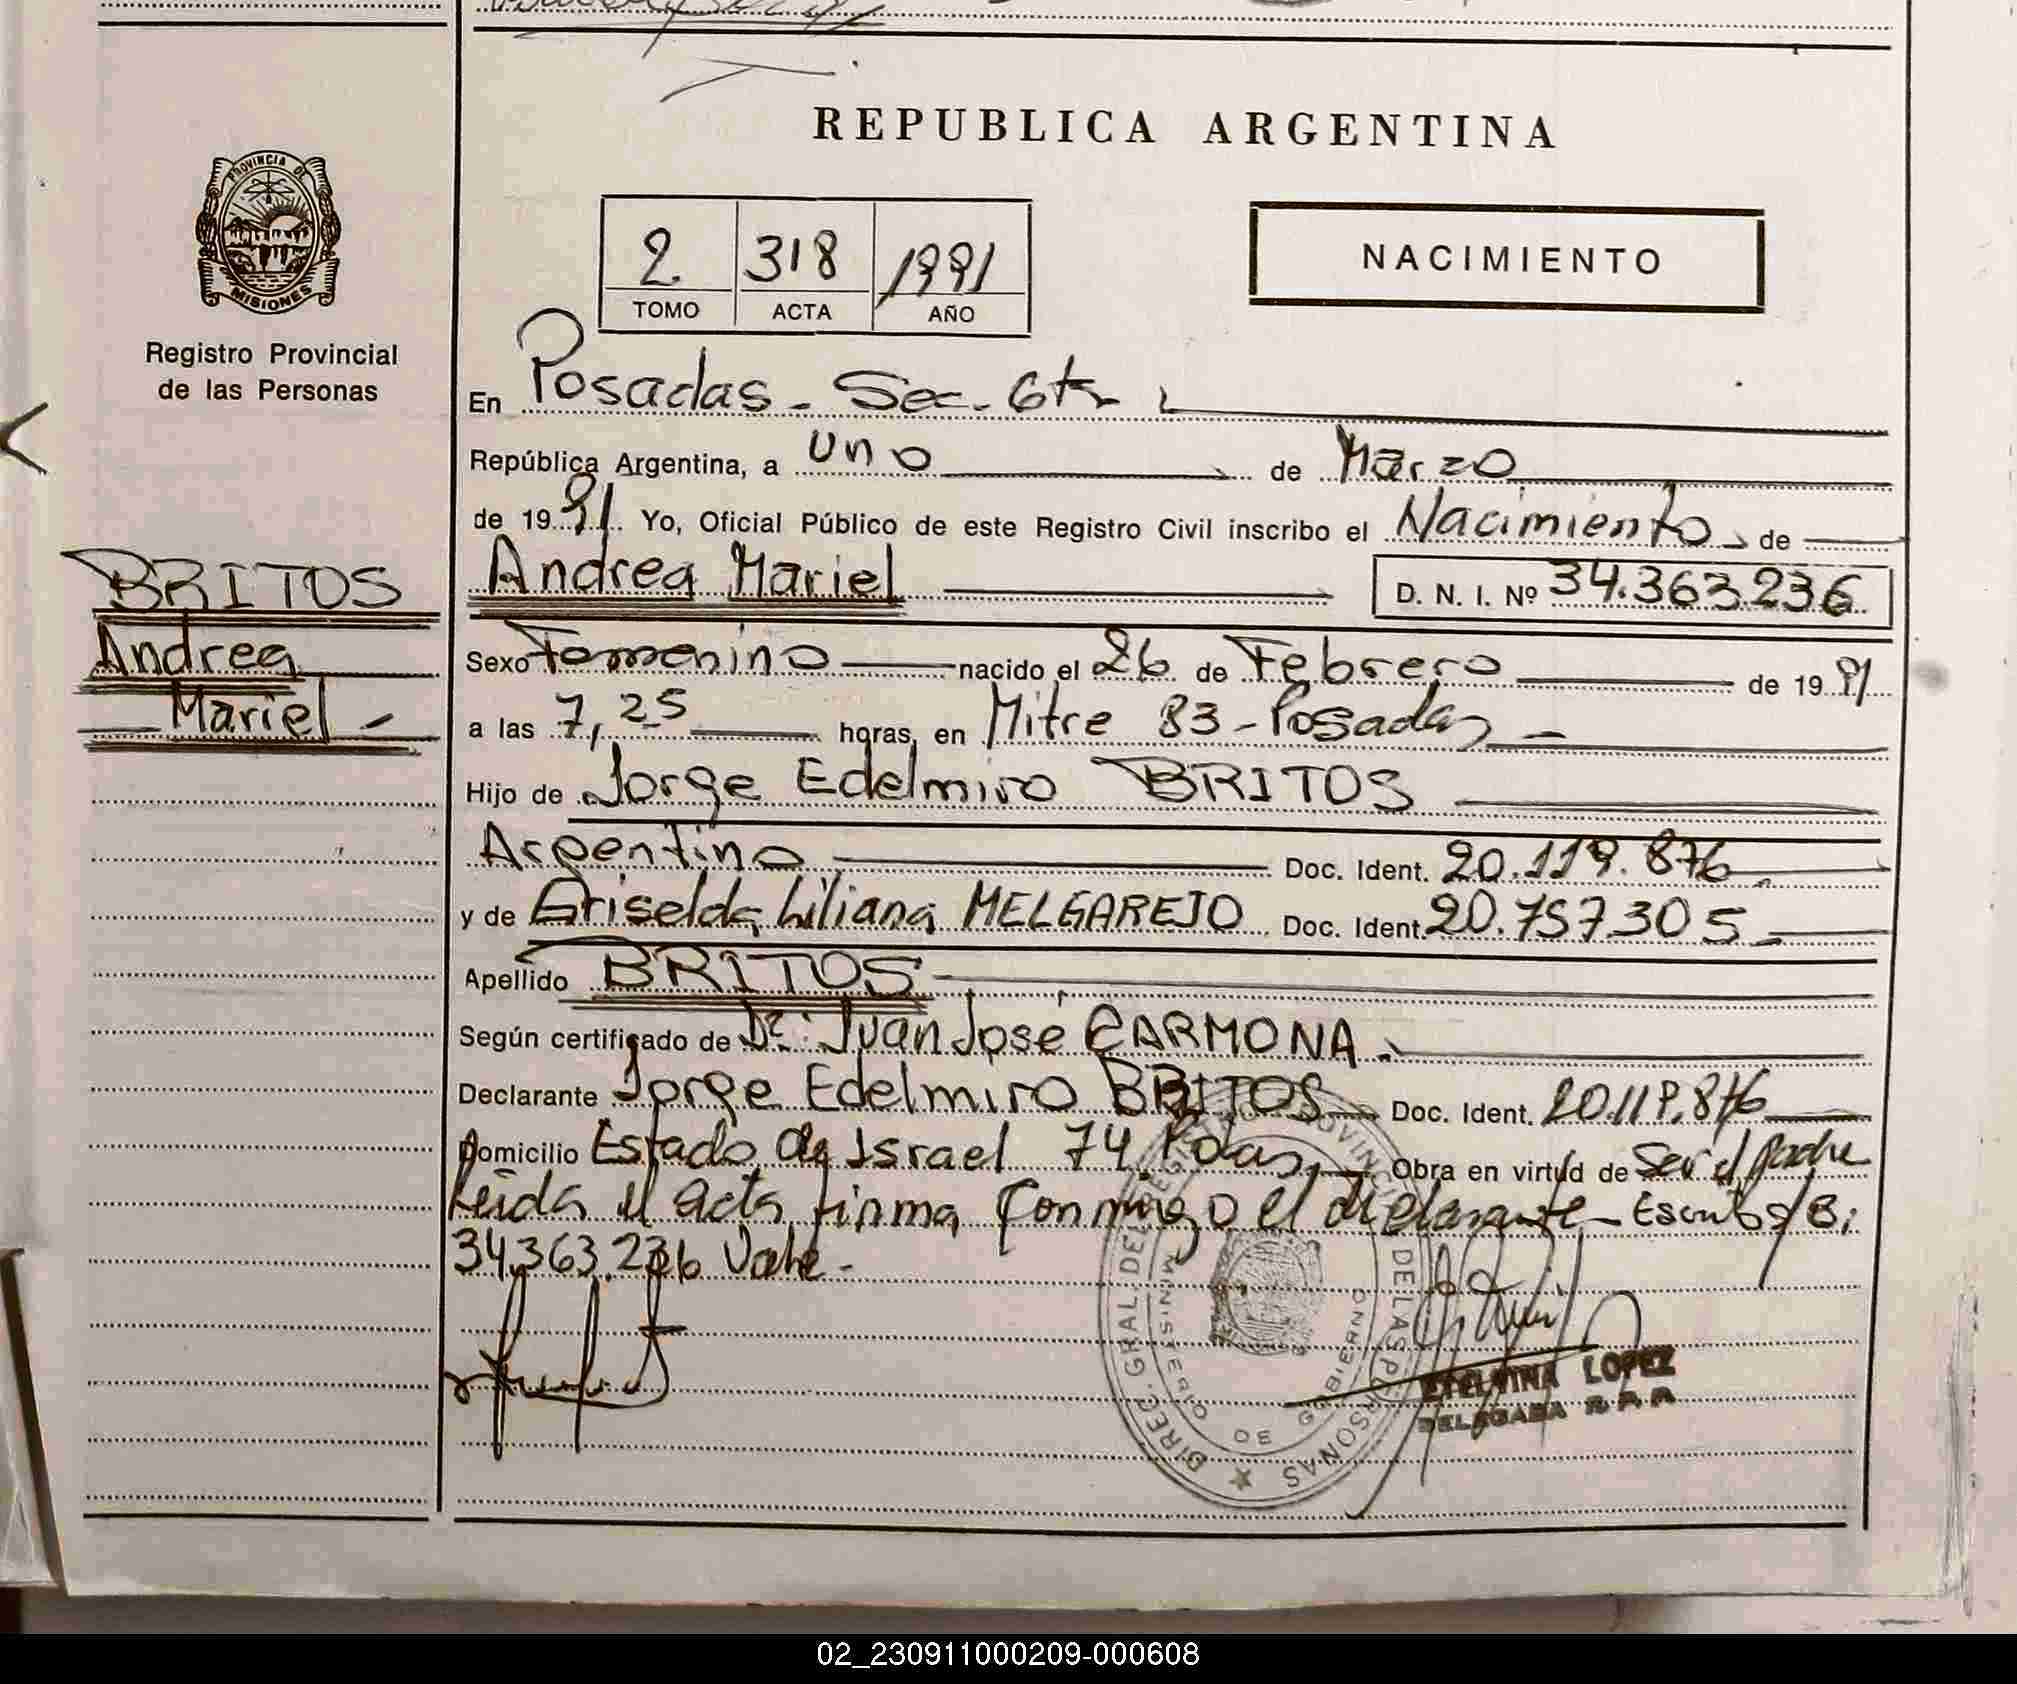 REPUBLICA ARGENTINA
PROVINCIA DE
MISIONES
Registro Provincial
de las Personas
2 318 1991
TOMO ACTA AÑO
NACIMIENTO
En Posadas - Sec. 6ta
República Argentina, a uno de Marzo
de 1991 Yo, Oficial Público de este Registro Civil inscribo el Nacimiento de
Andrea Mariel D. N. I. Nº 34.363.236
BRITOS
Andrea
Mariel -
Sexo Femenino nacido el 26 de Febrero de 1991
a las 7,25 horas, en Mitre 83 - Posadas -
Hijo de Jorge Edelmiro BRITOS
Argentino Doc. Ident. 20.119.876
y de Griselda Liliana MELGAREJO Doc. Ident. 20.757305
Apellido BRITOS
Según certificado de Dr. Juan José CARMONA.
Declarante Jorge Edelmiro BRITOS Doc. Ident. 20.119.876
Domicilio Estado de Israel 74 Pdas, Obra en virtud de Ser el padre
Leída el acta firma conmigo el declarante - Escrito s/B:
34.363.236 Vale -
DIREC. GRAL. DEL REGISTRO PROVINCIAL DE LAS PERSONAS
MINISTERIO DE GOBIERNO
ETELVINA LOPEZ
DELEGADA R.P.P.
02_230911000209-000608